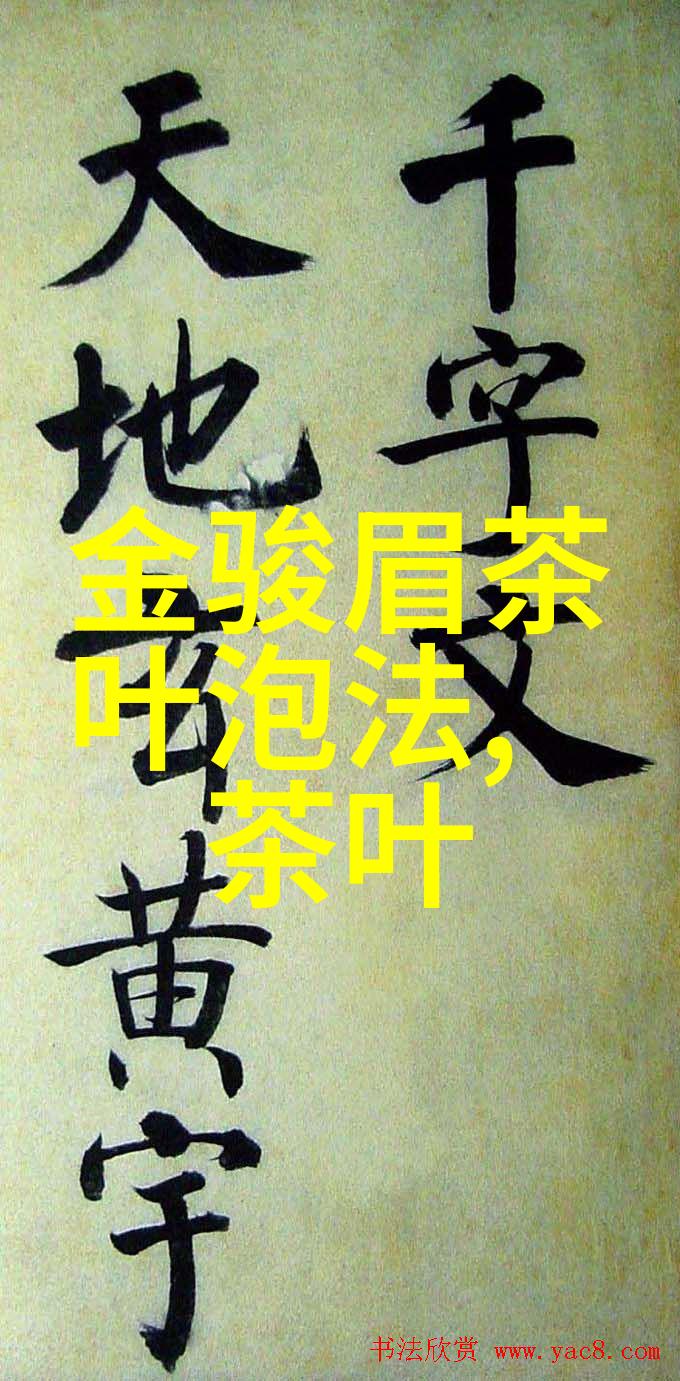 千字文
天地玄黄宇
金骏眉茶
叶泡法,
茶叶
书法欣赏 www.yac8.com